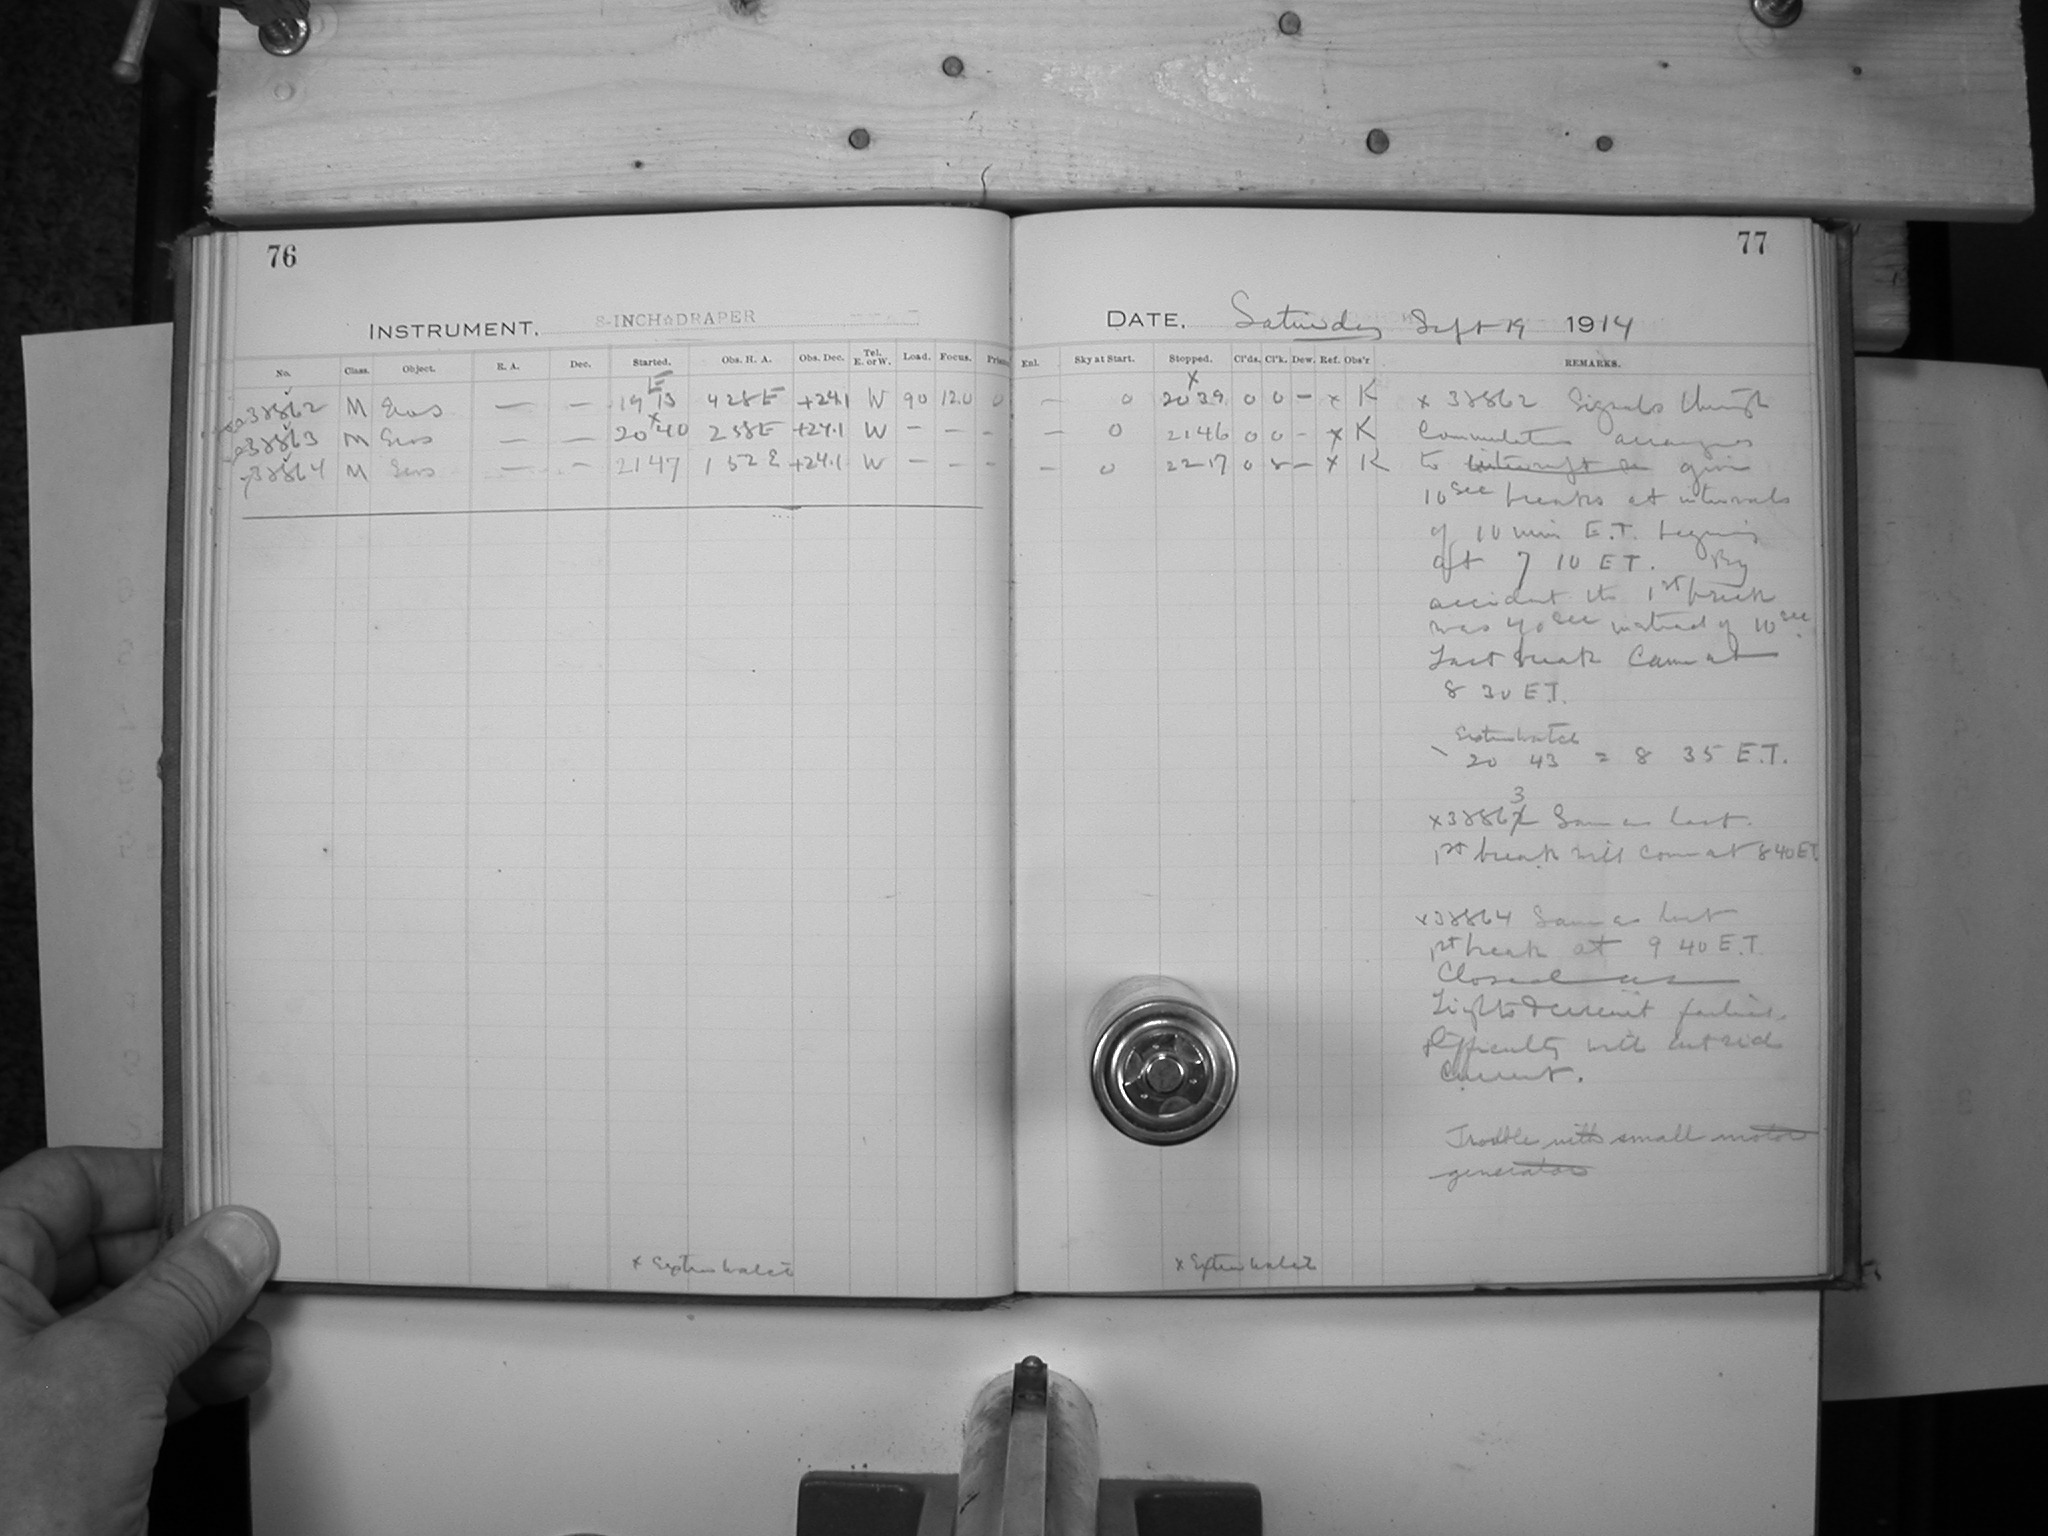 76
INSTRUMENT. 8-INCH DRAPER
No. Class. Object. R. A. Dec. Started. Obs. H. A. Obs. Dec. Tel. E. or W. Load. Focus. Prism
38862 M Eros — — 19 13 4 28 E +24.1 W 90 12.0 0
38863 M Eros — — 20 40 2 58 E +24.1 W – – –
38864 M Eros — — 21 47 1 52 E +24.1 W – – –
x Sixteen watch
77
DATE. Saturday Sept 19 1914
Enl. Sky at Start. Stopped. Cl'ds. Cl'k. Dew. Ref. Obs'r REMARKS.
— 0 x 20 39 0 0 – x K
— 0 21 46 0 0 – x K
– 0 22 17 0 8 – x K
x 38862 Signals through
commutator arranged
to give
10 sec breaks at intervals
of 10 min E.T. beginning
at 7 10 E T. By
accident the 1st break
was 40 sec instead of 10 sec.
Last break came at
8 30 E.T.
20 43 = 8 35 E.T.
x 38863 Same as last.
1st break will come at 8 40 E T
x 38864 Same as last
1st break at 9 40 E.T.
Closed as
Lights & current failing.
Difficulty with outside
current.
Trouble with small motor
generator